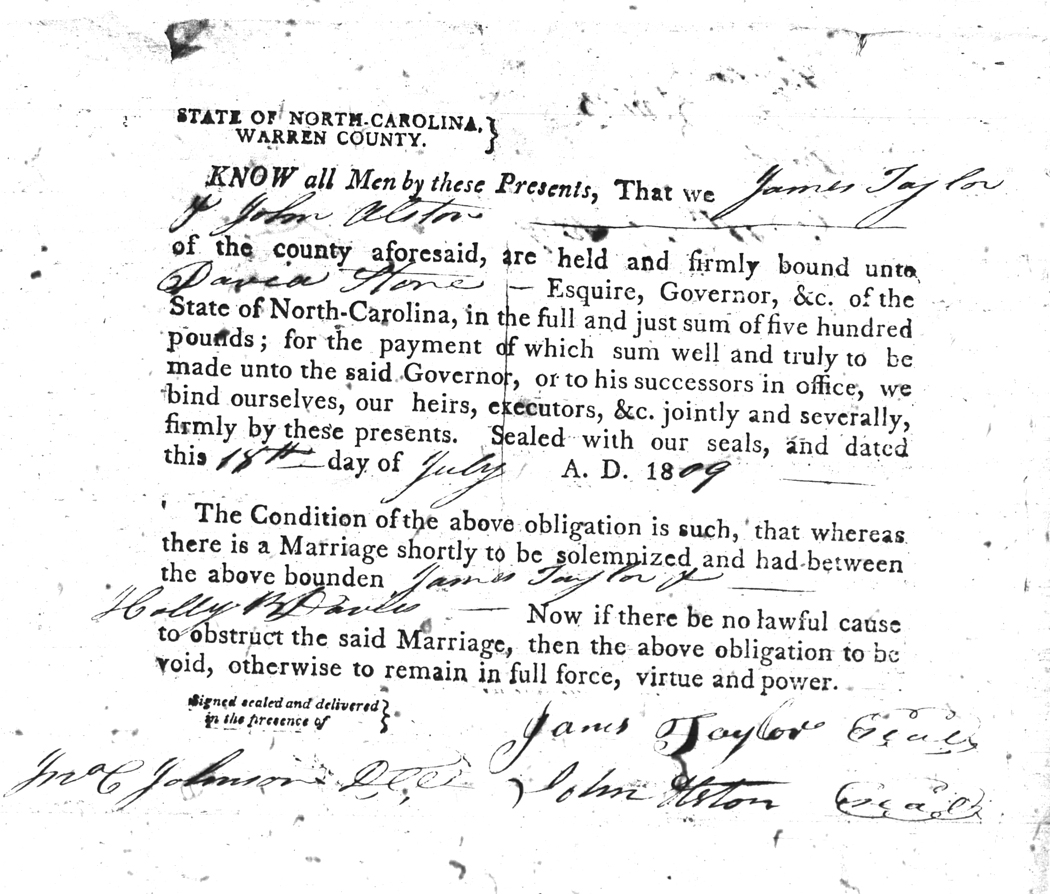 STATE OF NORTH-CAROLINA,
WARREN COUNTY.
KNOW all Men by these Presents, That we James Taylor
& John Alston
of the county aforesaid, are held and firmly bound unto
David Stone — Esquire, Governor, &c. of the
State of North-Carolina, in the full and just sum of five hundred
pounds; for the payment of which sum well and truly to be
made unto the said Governor, or to his successors in office, we
bind ourselves, our heirs, executors, &c. jointly and severally,
firmly by these presents. Sealed with our seals, and dated
this 18th day of July A. D. 1809
The Condition of the above obligation is such, that whereas
there is a Marriage shortly to be solemnized and had between
the above bounden James Taylor &
Holly B Davis — Now if there be no lawful cause
to obstruct the said Marriage, then the above obligation to be
void, otherwise to remain in full force, virtue and power.
Signed sealed and delivered
in the presence of
James Taylor (Seal)
Jno C Johnson
John Alston (Seal)